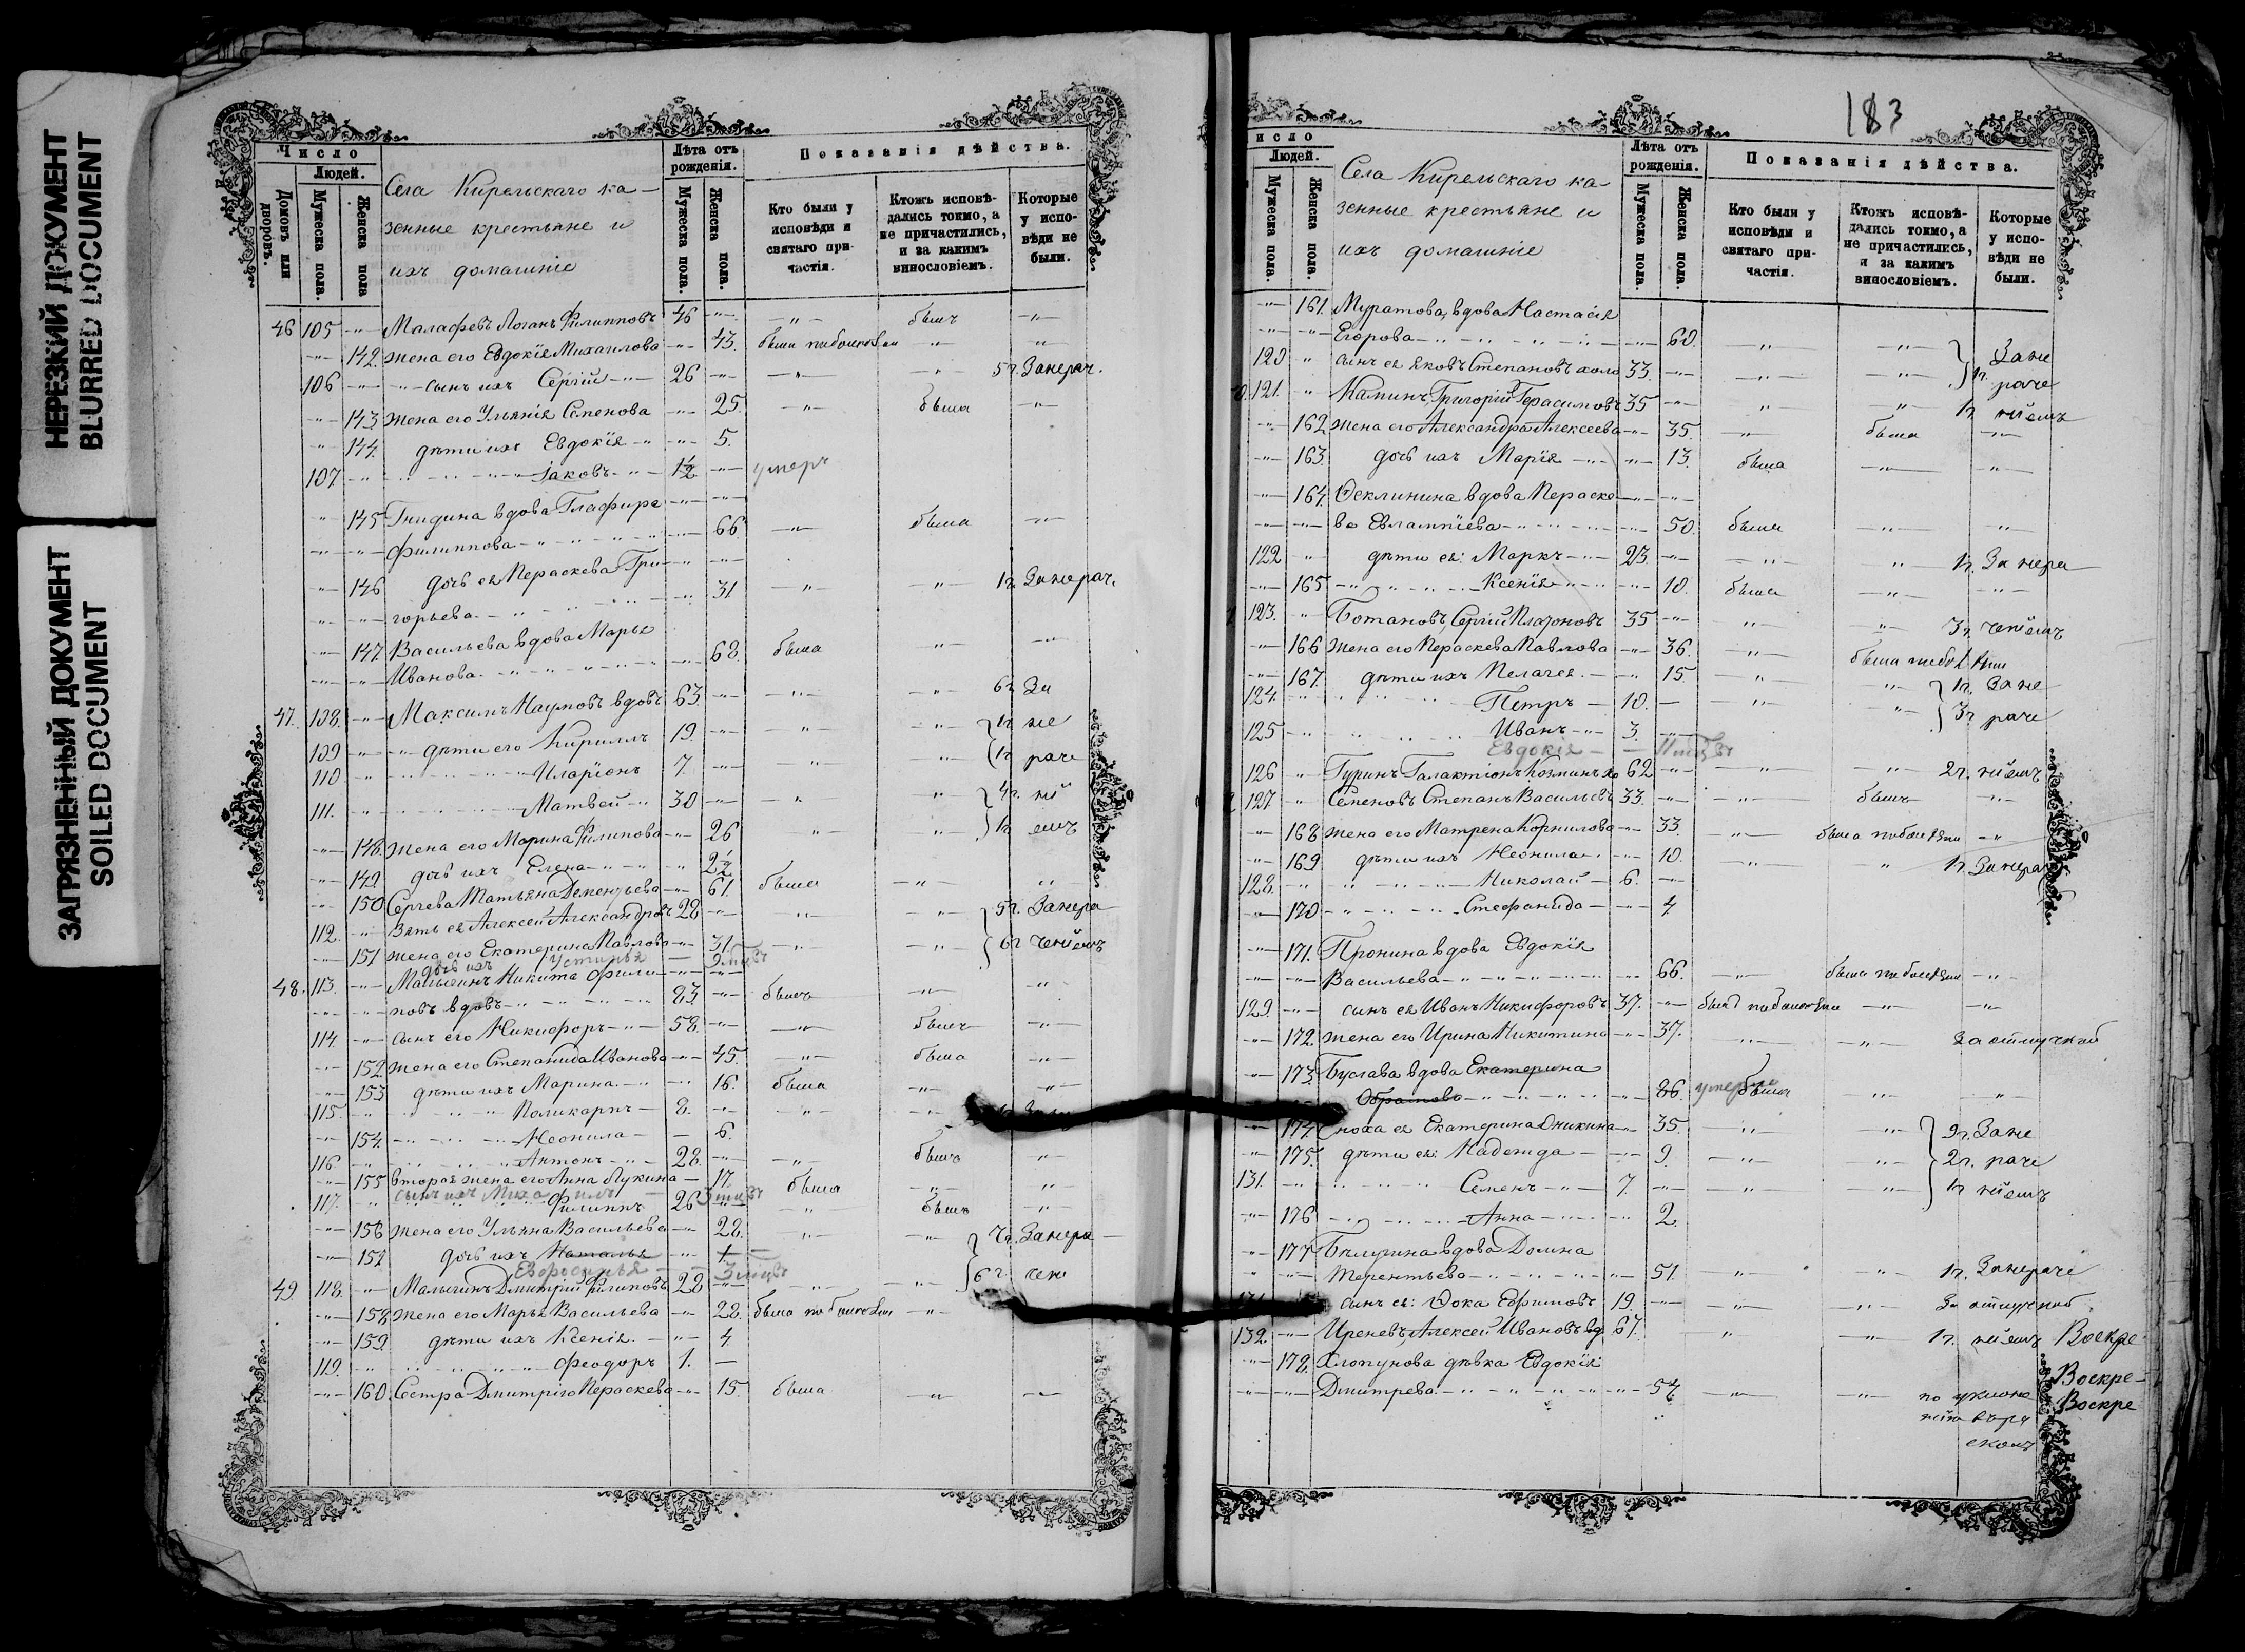 НЕРЕЗКИЙ ДОКУМЕНТ
BLURRED DOCUMENT
ЗАГРЯЗНЕННЫЙ ДОКУМЕНТ
SOILED DOCUMENT
Число
Людей.
Домовъ или дворовъ.
Мужеска пола.
Женска пола
Села Кирельскаго ка-
зенные крестьяне и
ихъ домашніе
Лѣта отъ рожденія.
Мужеска пола.
Женска пола.
Показанія дѣйства.
Кто были у исповѣди и святаго при-частія.
Ктожъ исповѣ-дались токмо, а не причастились, и за какимъ винословіемъ.
Которые у испо-вѣди не были.
46 105 Малафевъ Логанъ Филипповъ 46 былъ
142. жена его Евдокія Михаилова 43. была
106 сынъ ихъ Сергій 26 5 г. Занерач.
143 жена его Ульянія Семенова 25. была
144. дѣти ихъ Евдокія 5.
107 Іаковъ 1½ умеръ
145 Гнидина вдова Глафира
Филиппова 66. была
146 дочь ея Параскева Гри-
горьева 31 1 г. Занерач.
147. Васильева вдова Марья
Иванова 68. была
47. 108. Максимъ Наумовъ вдовъ 63. 6 г. За
109 дѣти его Кириллъ 19. 1 г. не
110 Иларіонъ 7. 1 г. раче
111. Матвей 30 4 г. ні
148. жена его Марина Филипова 26 1 г. емъ
149 дочь ихъ Елена 2½
150 Сергева Татьяна Дементьева 61. была
112. Зять ея Алексей Александровъ 28 5 г. Занера
151 жена его Екатерина Павлова 31. 6 г. ченіемъ
дочь ихъ Устинья 9 мцвъ
48. 113. Малыгинъ Никита Фили-
повъ вдовъ 83 былъ
114. сынъ его Никифоръ 58. былъ
152 жена его Степанида Иванова 45. была
153 дѣти ихъ Марина 16. была
115. Поликарпъ 8.
154. Неонила 6.
116 Антонъ 28. былъ
155 вторая жена его Анна Лукина 17. была
сынъ ихъ Михаилъ 3 мцвъ
117. Филиппъ 26 былъ
156 жена его Ульяна Васильева 28. 7 г. Занера
157 дочь ихъ Наталья 1
Евфросинья 3 мцвъ
49 118. Малыгинъ Дмитрій Филиповъ 28 6 г. чені
158 жена его Марья Васильева 28. была
159 дѣти ихъ Ксенія 4
119. Феодоръ 1.
160. Сестра Дмитрія Параскева 15. была
183
исло
Людей.
Мужеска пола.
Женска пола.
Села Кирельскаго ка
зенные крестьяне и
ихъ домашніе
Лѣта отъ рожденія.
Мужеска пола.
Женска пола.
Показанія дѣйства.
Кто были у исповѣди и святаго при-частія.
Ктожъ исповѣ-дались токмо, а не причастились, и за какимъ винословіемъ.
Которые у испо-вѣди не были.
161. Муратова, вдова Настасія
Егорова 60. Зане
120 сынъ ея Яковъ Степановъ холо 33. 1 г. раче
121. Каминъ, Григорій Герасимовъ 35 1 г. ніемъ
162 жена его Александра Алексеева 35. была
163 дочь ихъ Марія 13. была
164. Феклинина вдова Параске
ва Евлампіева 50. была
122 дѣти ея: Маркъ 23. 1 г. Занера
165 Ксенія 10. была
123. Ботановъ, Сергій Платоновъ 35 3 г. ченіемъ
166 жена его Параскева Павлова 36. была
167. дѣти ихъ Пелагея 15. 1 г. Зане
124. Петръ 10. 3 г. раче
125 Иванъ 3.
Евдокія 11 мцвъ
126 Гуринъ Галактіонъ Козминъ хо 62 2 г. ніемъ
127 Семеновъ Степанъ Васильевъ 33. былъ
168 жена его Матрена Корнилова 33. была
169 дѣти ихъ Неонила 10. 1 г. Занерач
128. Николай 6.
170 Стефанида 4
171. Пронина вдова Евдокія
Васильева 66. была
129. сынъ ея Иванъ Никифоровъ 37. былъ
172. жена его Ирина Никитина 37. За отлучкой
173. Буслава вдова Екатерина
86. умерла
174. Сноха ея Екатерина Аникина 35. 9 г. Зане
175. дѣти ея: Надежда 9. 2 г. раче
131. Семенъ 7. 1 г. ніемъ
176 Анна 2.
177 Бълугина вдова Домна
Терентьева 51. 1 г. Занерачі
сынъ ея: Фока Ефимовъ 19. За отлучкой
132. Иреневъ, Алексей Ивановъ вд 67. 1 г. ніемъ Воскре
178. Хлопунова дѣвка Евдокія Воскре-
Дмитрева 54 по уклоне Воскре
нію въ ра
сколъ